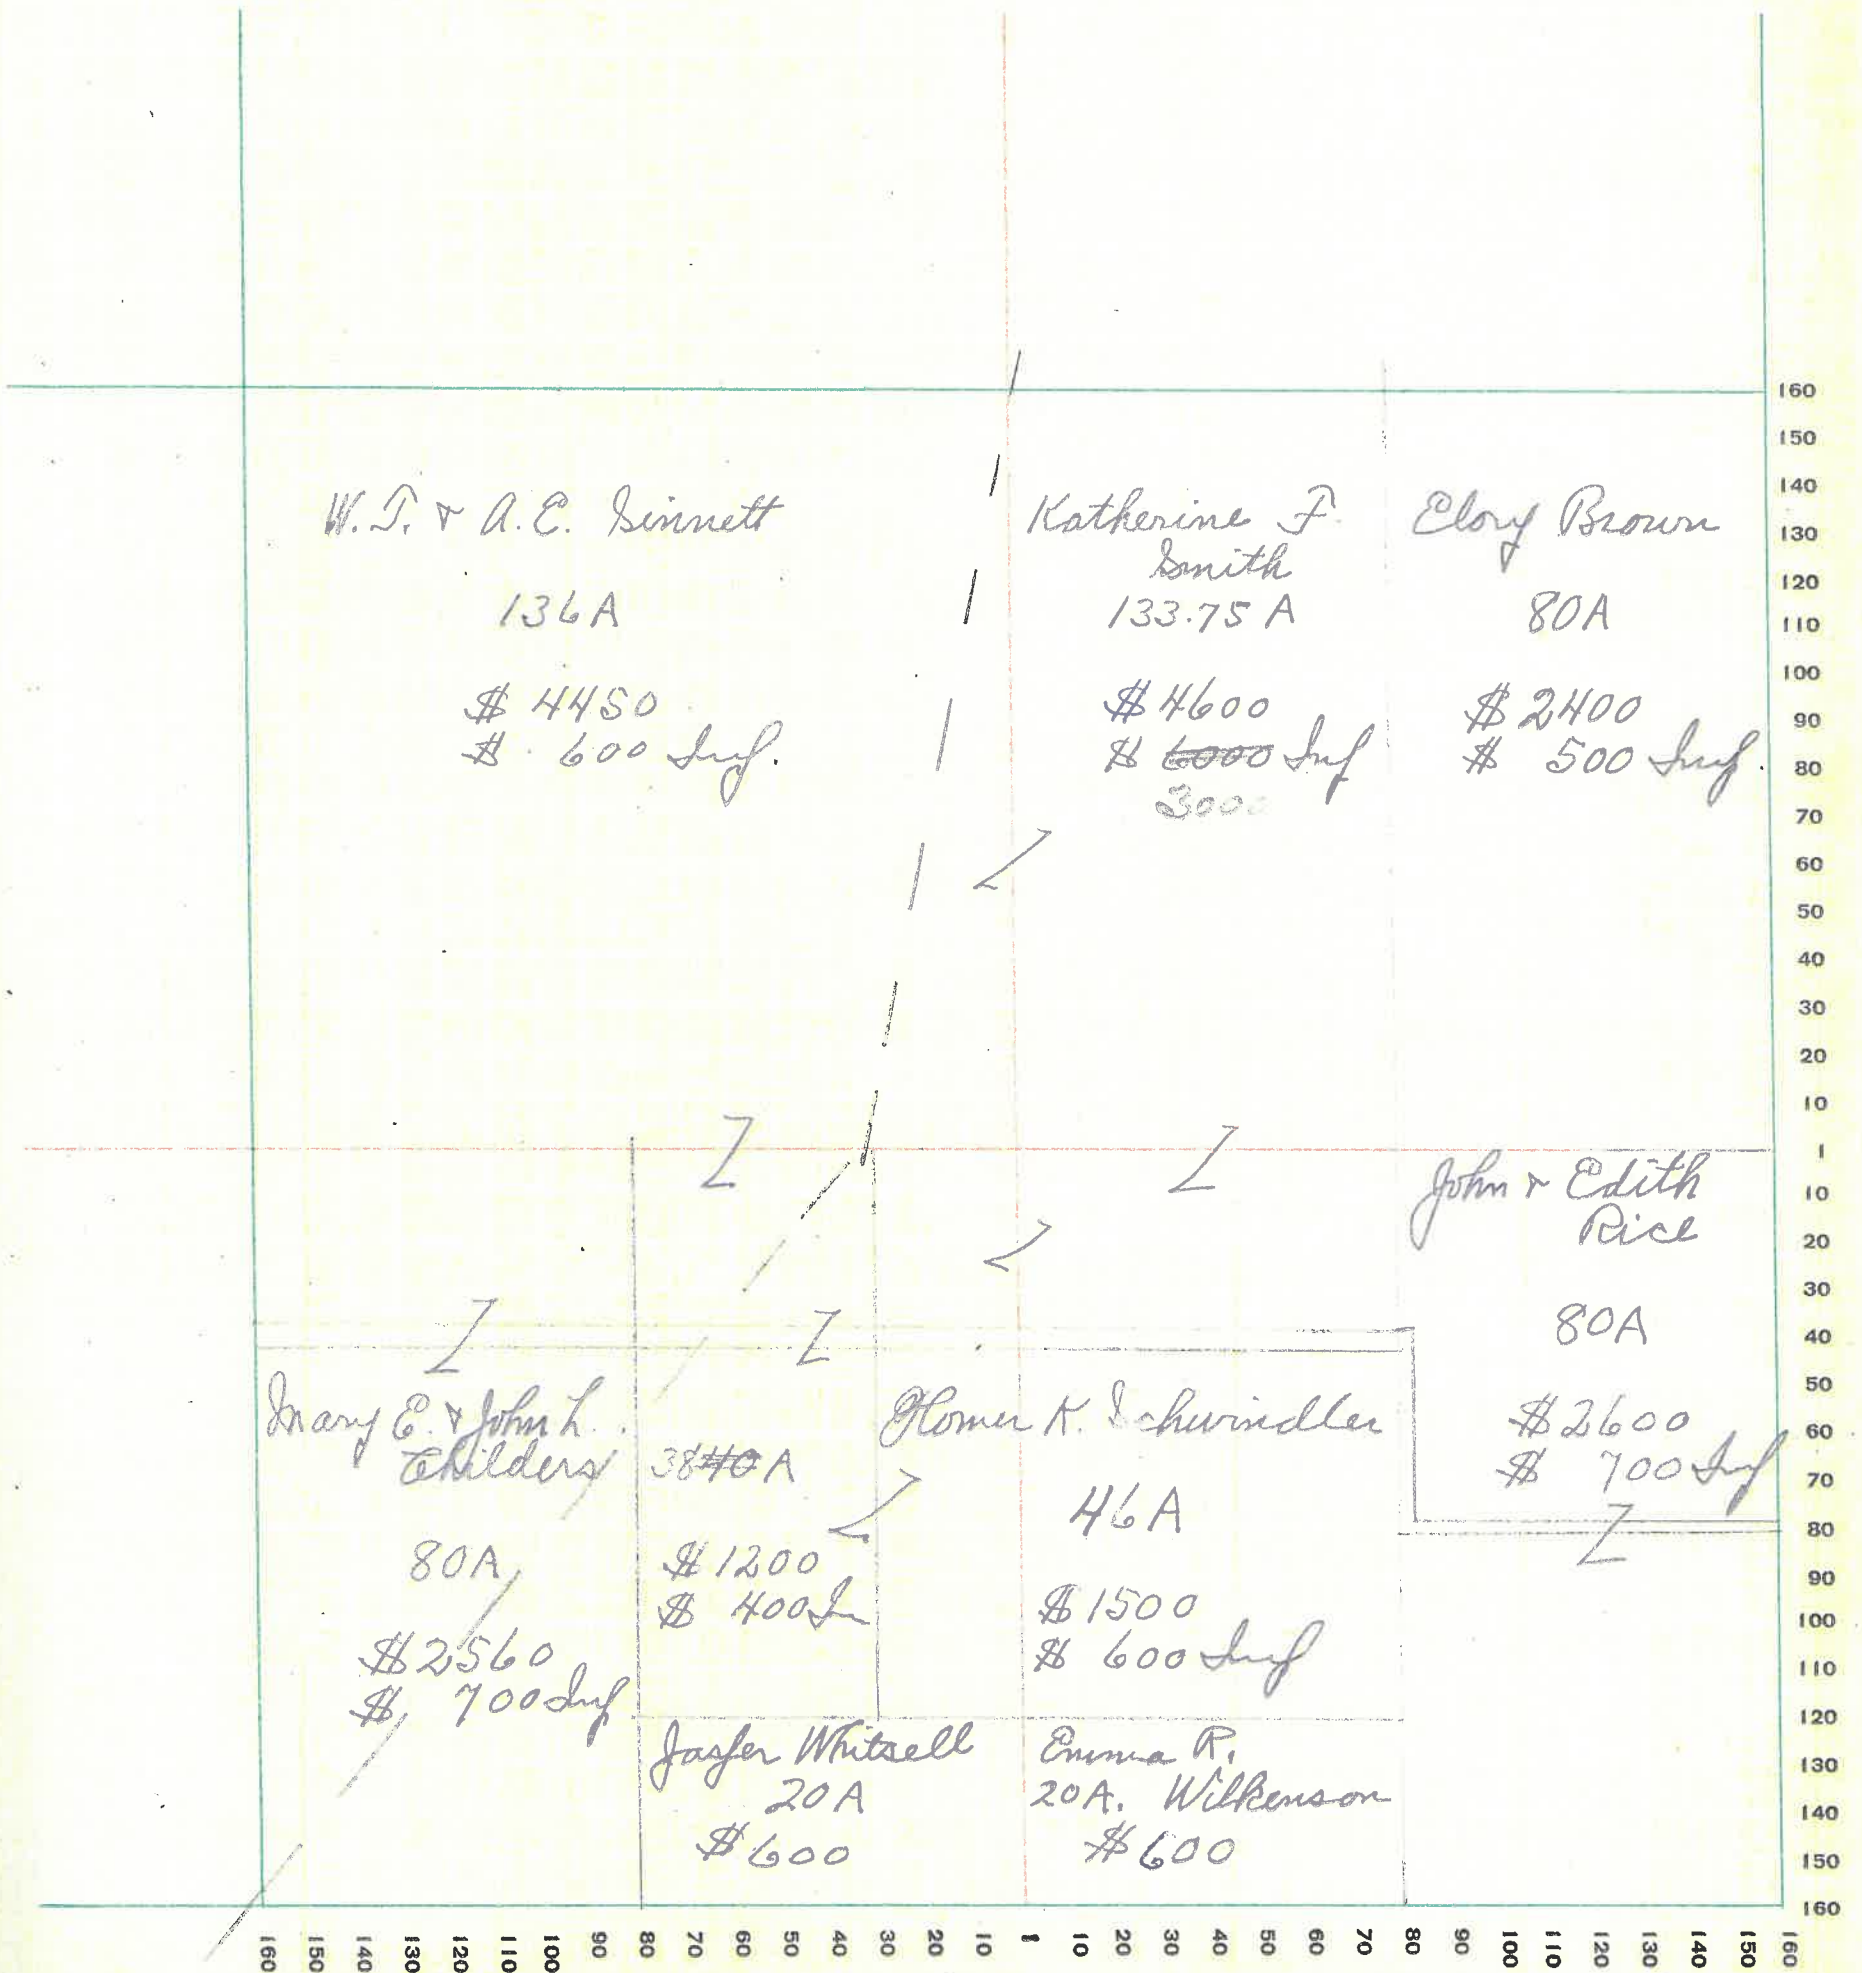 W.T. & A.E. Sinnett
136A
$ 4450
$ 600 Imp.
Katherine F.
Smith
133.75 A
$ 4600
$ 6000 Imp
3000
Elory Brown
80A
$ 2400
$ 500 Imp.
John & Edith
Rice
80A
$ 2600
$ 700 Imp
Mary E. & John L.
Childers
80A
$ 2560
$ 700 Imp
38 40 A
$ 1200
$ 400 Im
Homer K. Schwindler
46A
$ 1500
$ 600 Imp
Jasper Whitsell
20A
$ 600
Emma R.
20A. Wilkenson
$ 600
160
150
140
130
120
110
100
90
80
70
60
50
40
30
20
10
1
10
20
30
40
50
60
70
80
90
100
110
120
130
140
150
160
160 150 140 130 120 110 100 90 80 70 60 50 40 30 20 10 1 10 20 30 40 50 60 70 80 90 100 110 120 130 140 150 160